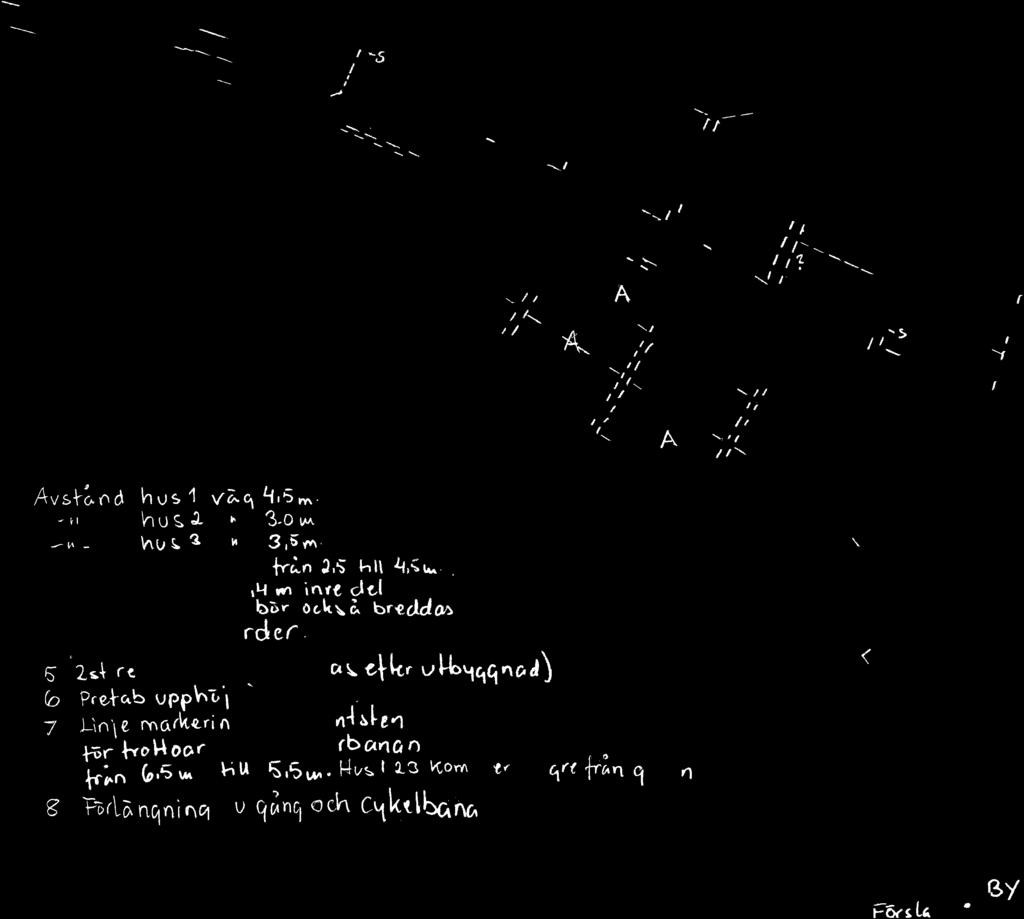 -5
?
A
A
-5
A
Avstånd hus 1 väg 4,5 m.
-"- hus 2 " 3.0 m
-"- hus 3 " 3,5 m.
från 2,5 till 4,5 m.
,4 m inre del
bör också breddas
rder.
5 2st re as efter utbyggnad)
6 Pretab upphöj
7 Linje markerin ntsten
för trottoar rbanan
från 6,5 m till 5,5 m. Hus 1 2 3 kom er gre från g n
8 Förlängning u gång och cykelbana
BY
Försla